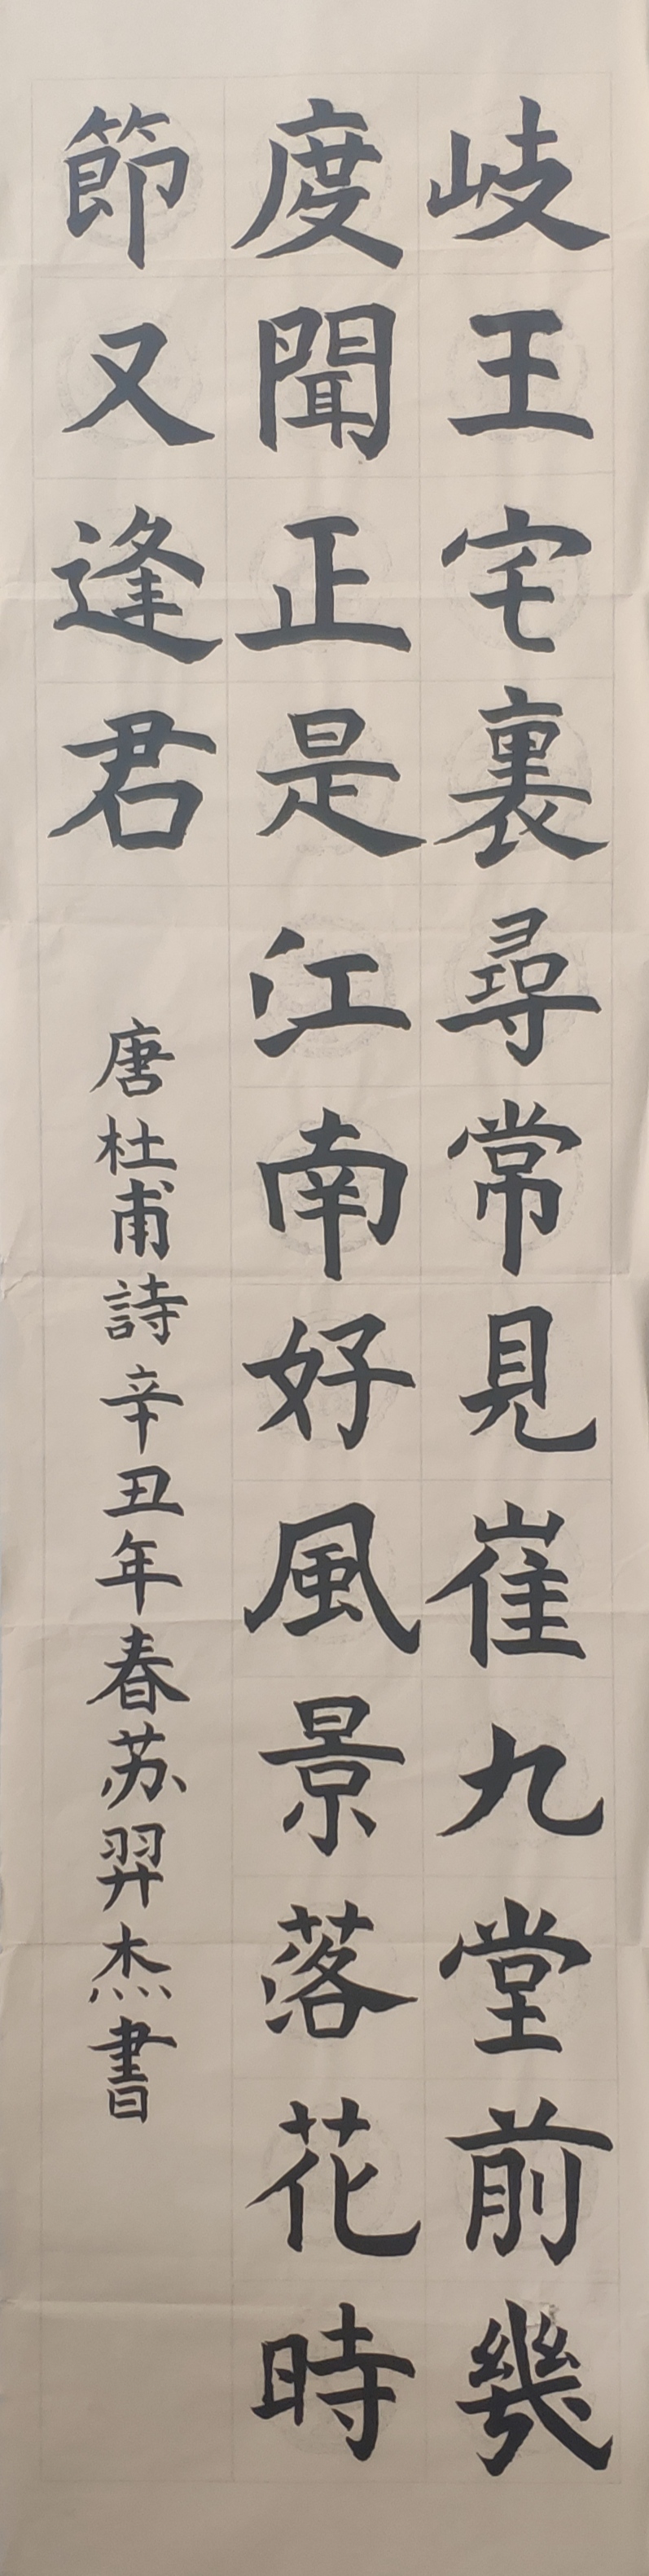 岐王宅裏尋常見崔九堂前幾
度聞正是江南好風景落花時
節又逢君
唐杜甫詩辛丑年春苏羿杰書